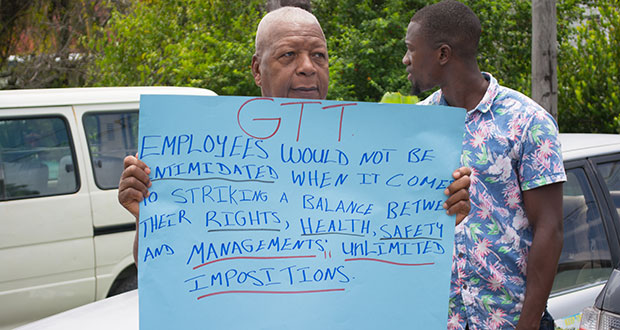 GTT
EMPLOYEES WOULD NOT BE
INTIMIDATED WHEN IT COME
TO STRIKING A BALANCE BETWE
THEIR RIGHTS, HEALTH, SAFETY
AND MANAGEMENTS' "UNLIMITED
IMPOSITIONS.